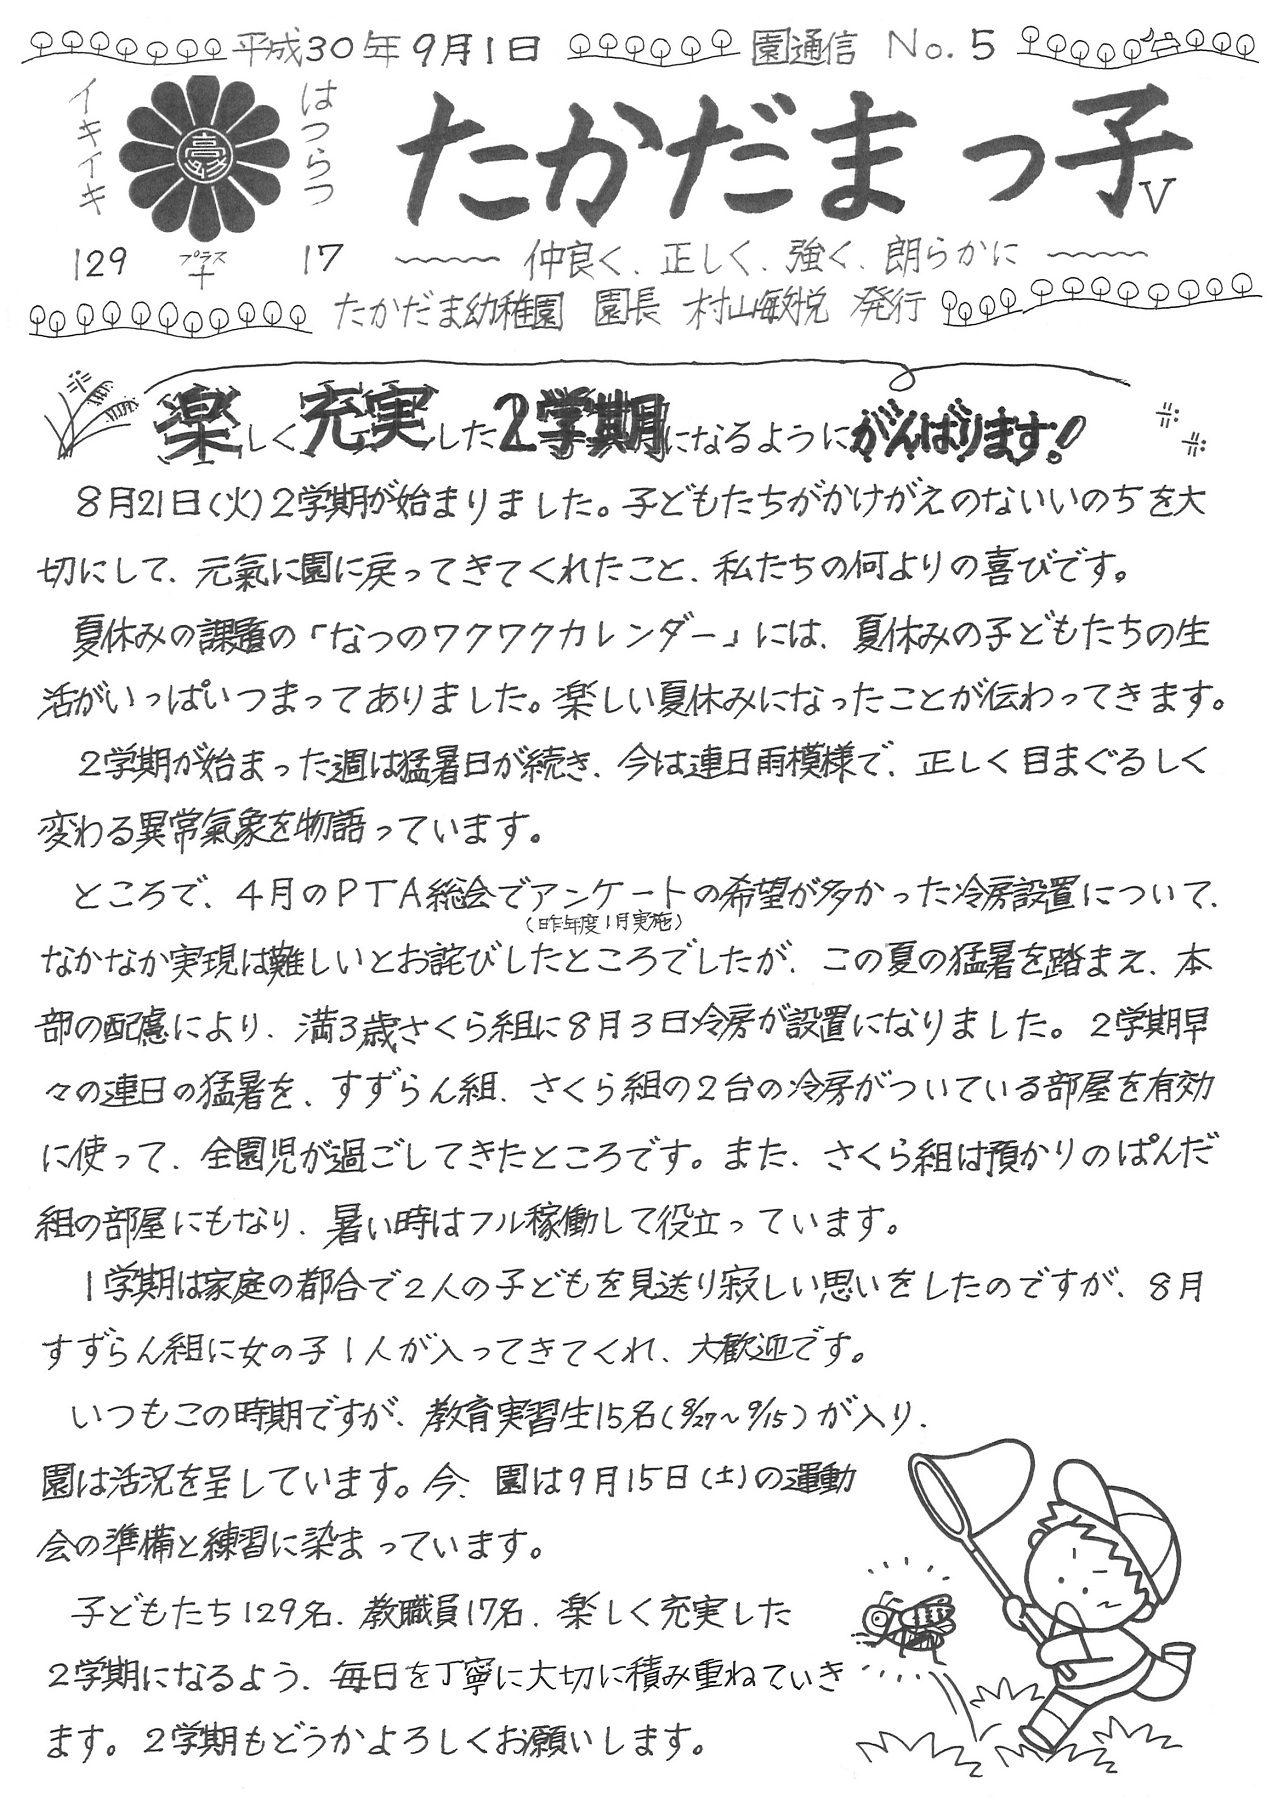 平成30年9月1日 園通信 No.5
イキイキ はつらつ
たかだまっ子V
129 プラス＋ 17 仲良く、正しく、強く、朗らかに
たかだま幼稚園 園長 村山敏悦 発行
楽しく充実した2学期になるようにがんばります！
8月21日(火)2学期が始まりました。子どもたちがかけがえのないいのちを大
切にして、元氣に園に戻ってきてくれたこと、私たちの何よりの喜びです。
夏休みの課題の「なつのワクワクカレンダー」には、夏休みの子どもたちの生
活がいっぱいつまってありました。楽しい夏休みになったことが伝わってきます。
2学期が始まった週は猛暑日が続き、今は連日雨模様で、正しく目まぐるしく
変わる異常氣象を物語っています。
ところで、4月のPTA総会でアンケートの希望が多かった冷房設置について、
(昨年度1月実施)
なかなか実現は難しいとお詫びしたところでしたが、この夏の猛暑を踏まえ、本
部の配慮により、満3歳さくら組に8月3日冷房が設置になりました。2学期早
々の連日の猛暑を、すずらん組、さくら組の2台の冷房がついている部屋を有効
に使って、全園児が過ごしてきたところです。また、さくら組は預かりのぱんだ
組の部屋にもなり、暑い時はフル稼働して役立っています。
1学期は家庭の都合で2人の子どもを見送り寂しい思いをしたのですが、8月
すずらん組に女の子1人が入ってきてくれ、大歓迎です。
いつもこの時期ですが、教育実習生15名(8/27～9/15)が入り、
園は活況を呈しています。今、園は9月15日(土)の運動
会の準備と練習に染まっています。
子どもたち129名、教職員17名、楽しく充実した
2学期になるよう、毎日を丁寧に大切に積み重ねていき
ます。2学期もどうかよろしくお願いします。